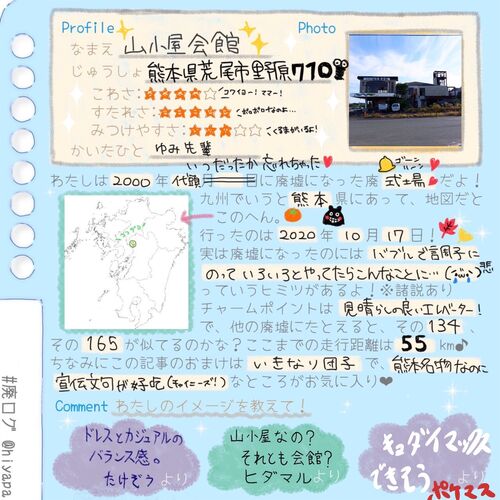 Profile
Photo
なまえ 山小屋会館
じゅうしょ 熊本県荒尾市野原710
こわさ: ★★★★☆ (コワイヨー!ママー!
すたれさ: ★★★★★ (ボロボロなのよ…
みつけやすさ: ★★★★☆ (くるまがいるよ!
かいたひと ゆみ先輩
いつだったか忘れちゃった♥
ゴーン ゴーン
わたしは2000年代頭 に廃墟になった廃 式場♥だよ!
九州でいうと熊本県にあって、地図だと
このへん。
ココッデヨ!
行ったのは2020年10月17日!
実は廃墟になったのにはバブルで調子に
のっていろいろとやってたらこんなことに…悲
っていうヒミツがあるよ!※諸説あり
チャームポイントは見晴らしの良いエレベーター!
で、他の廃墟にたとえると、その134、
その165が似てるのかな?ここまでの走行距離は55km♪
ちなみにこの記事のおまけはいきなり団子で、熊本名物なのに
宣伝文句が好吃(チャイニーズ!)なところがお気に入り♥
Comment わたしのイメージを教えて!
ドレスとカジュアルの
バランス感。
たけぞう より
山小屋なの?
それとも会館?
ヒダマル より
キョダイマックス
できそう より
ポケマス
#廃ログ @hiyapa